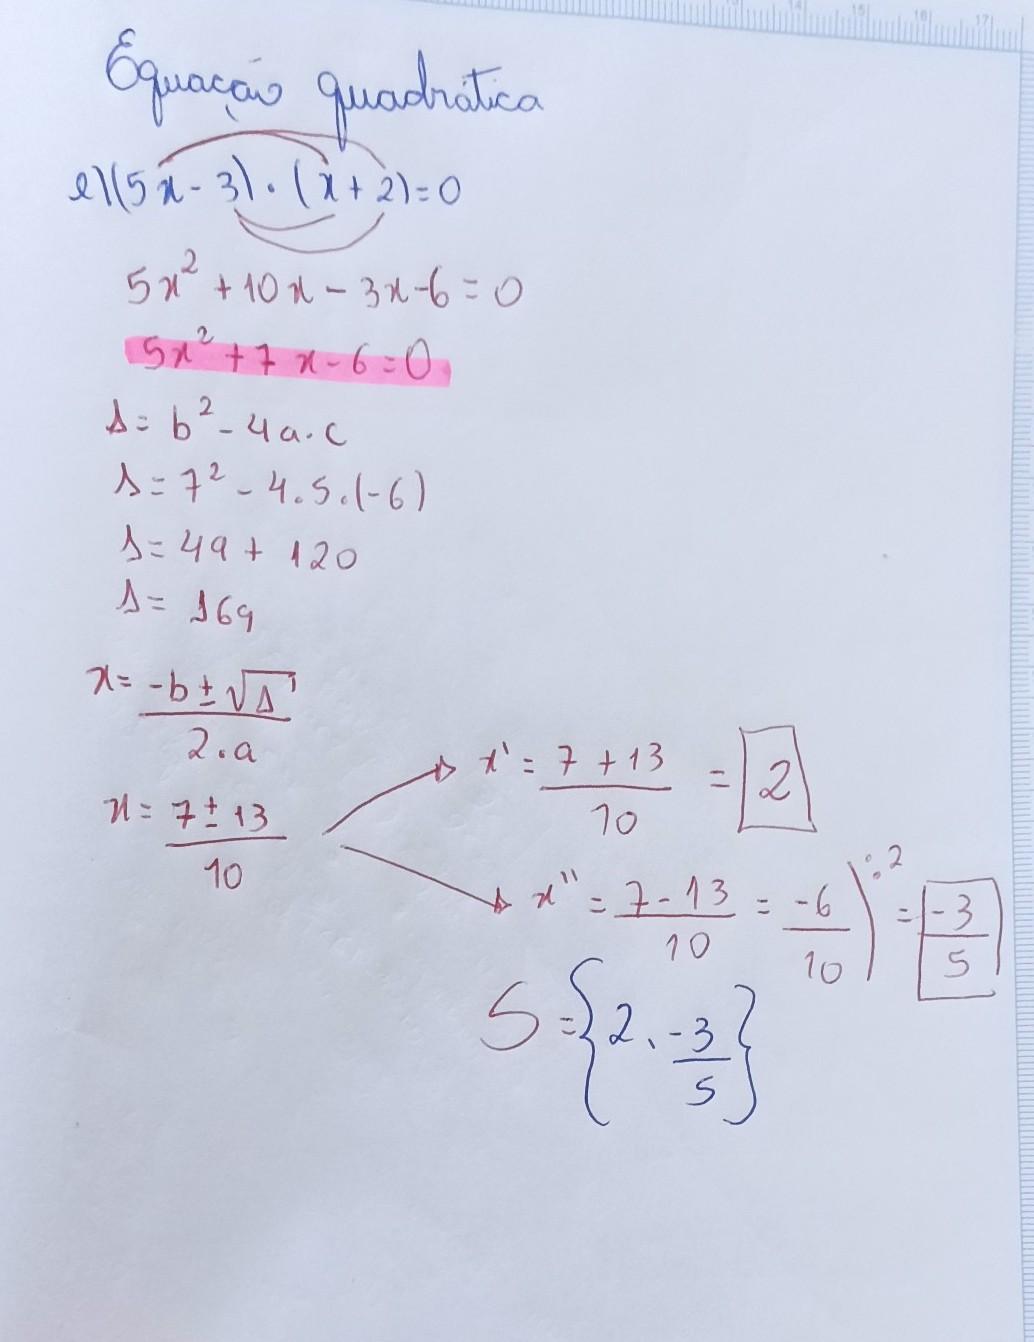 Equação quadrática
e) (5x - 3) · (x + 2) = 0
5x² + 10x - 3x - 6 = 0
5x² + 7x - 6 = 0
Δ = b² - 4a·c
Δ = 7² - 4.5.(-6)
Δ = 49 + 120
Δ = 169
x = -b ± √Δ / 2.a
x = 7 ± 13 / 10
x' = 7 + 13 / 10 = 2
x'' = 7 - 13 / 10 = -6 / 10 ) :2 = -3 / 5
S = {2, -3 / 5}
13 14 15 16 17